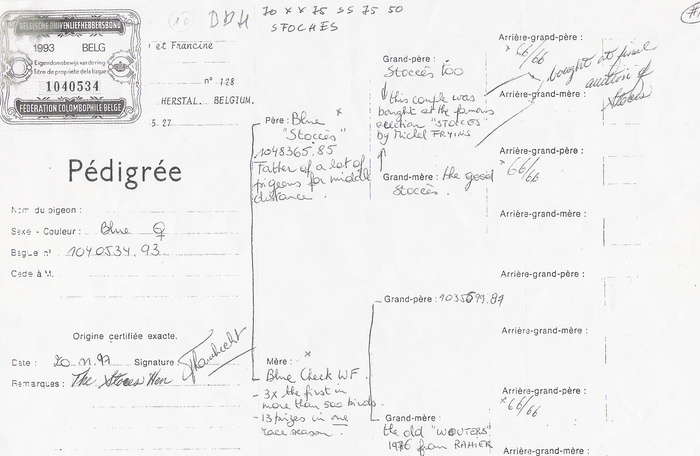 10 DDH 70 X X 75 SS 75 50
STOCHES
BELGISCHE DUIVENLIEFHEBBERSBOND
1993 BELG
Eigendomsbewijs van den ring
Titre de propriété de la bague
1040534
FEDERATION COLOMBOPHILE BELGE
et Francine
n° 128
HERSTAL. BELGIUM.
5. 27
Pédigrée
Nom du pigeon :
Sexe - Couleur : Blue ♀
Bague n° 1040534.93
Cédé à M.
Origine certifiée exacte.
Date : 20.11.97 Signature
Remarques : The Stoces Hen
Père : Blue
"Stoccès"
1048365.85
Father of a lot of
pigeons for middle
distance.
Mère :
Blue Check WF.
- 3x the first in
more than 500 birds.
- 13 prizes in one
race season.
Grand-père :
Stoccès Too
this couple was
bought at the famous
auction "STOCCES"
by Michel FRYINS
Grand-mère : the good
Stoccès.
Grand-père : 1035699.81
Grand-mère :
the old "WOUTERS"
1976 from RAHIER
Arrière-grand-père :
66/66
bought at final
auction of
Stoces
Arrière-grand-mère :
Arrière-grand-père :
66/66
Arrière-grand-mère :
Arrière-grand-père :
Arrière-grand-mère :
Arrière-grand-père :
66/66
Arrière-grand-mère :